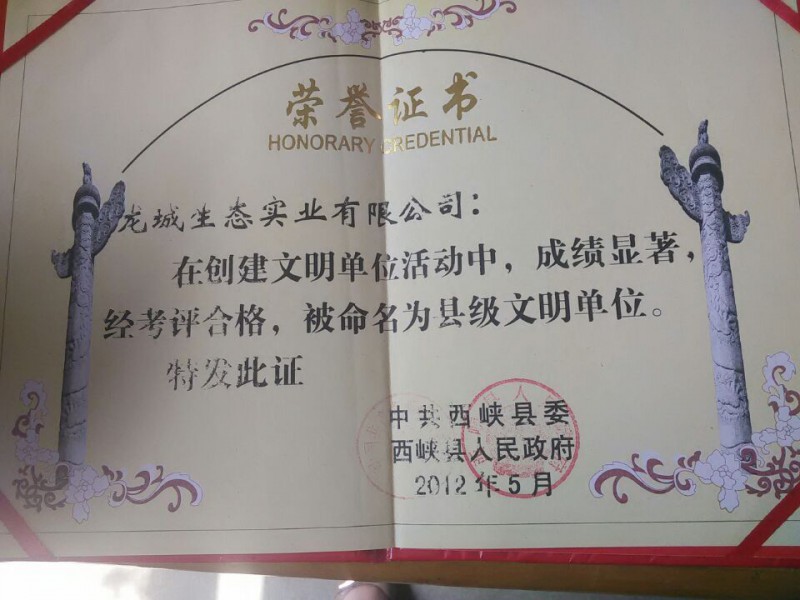 荣誉证书
HONORARY CREDENTIAL
龙城生态实业有限公司：
在创建文明单位活动中，成绩显著，
经考评合格，被命名为县级文明单位。
特发此证
中共西峡县委
西峡县人民政府
2012年5月